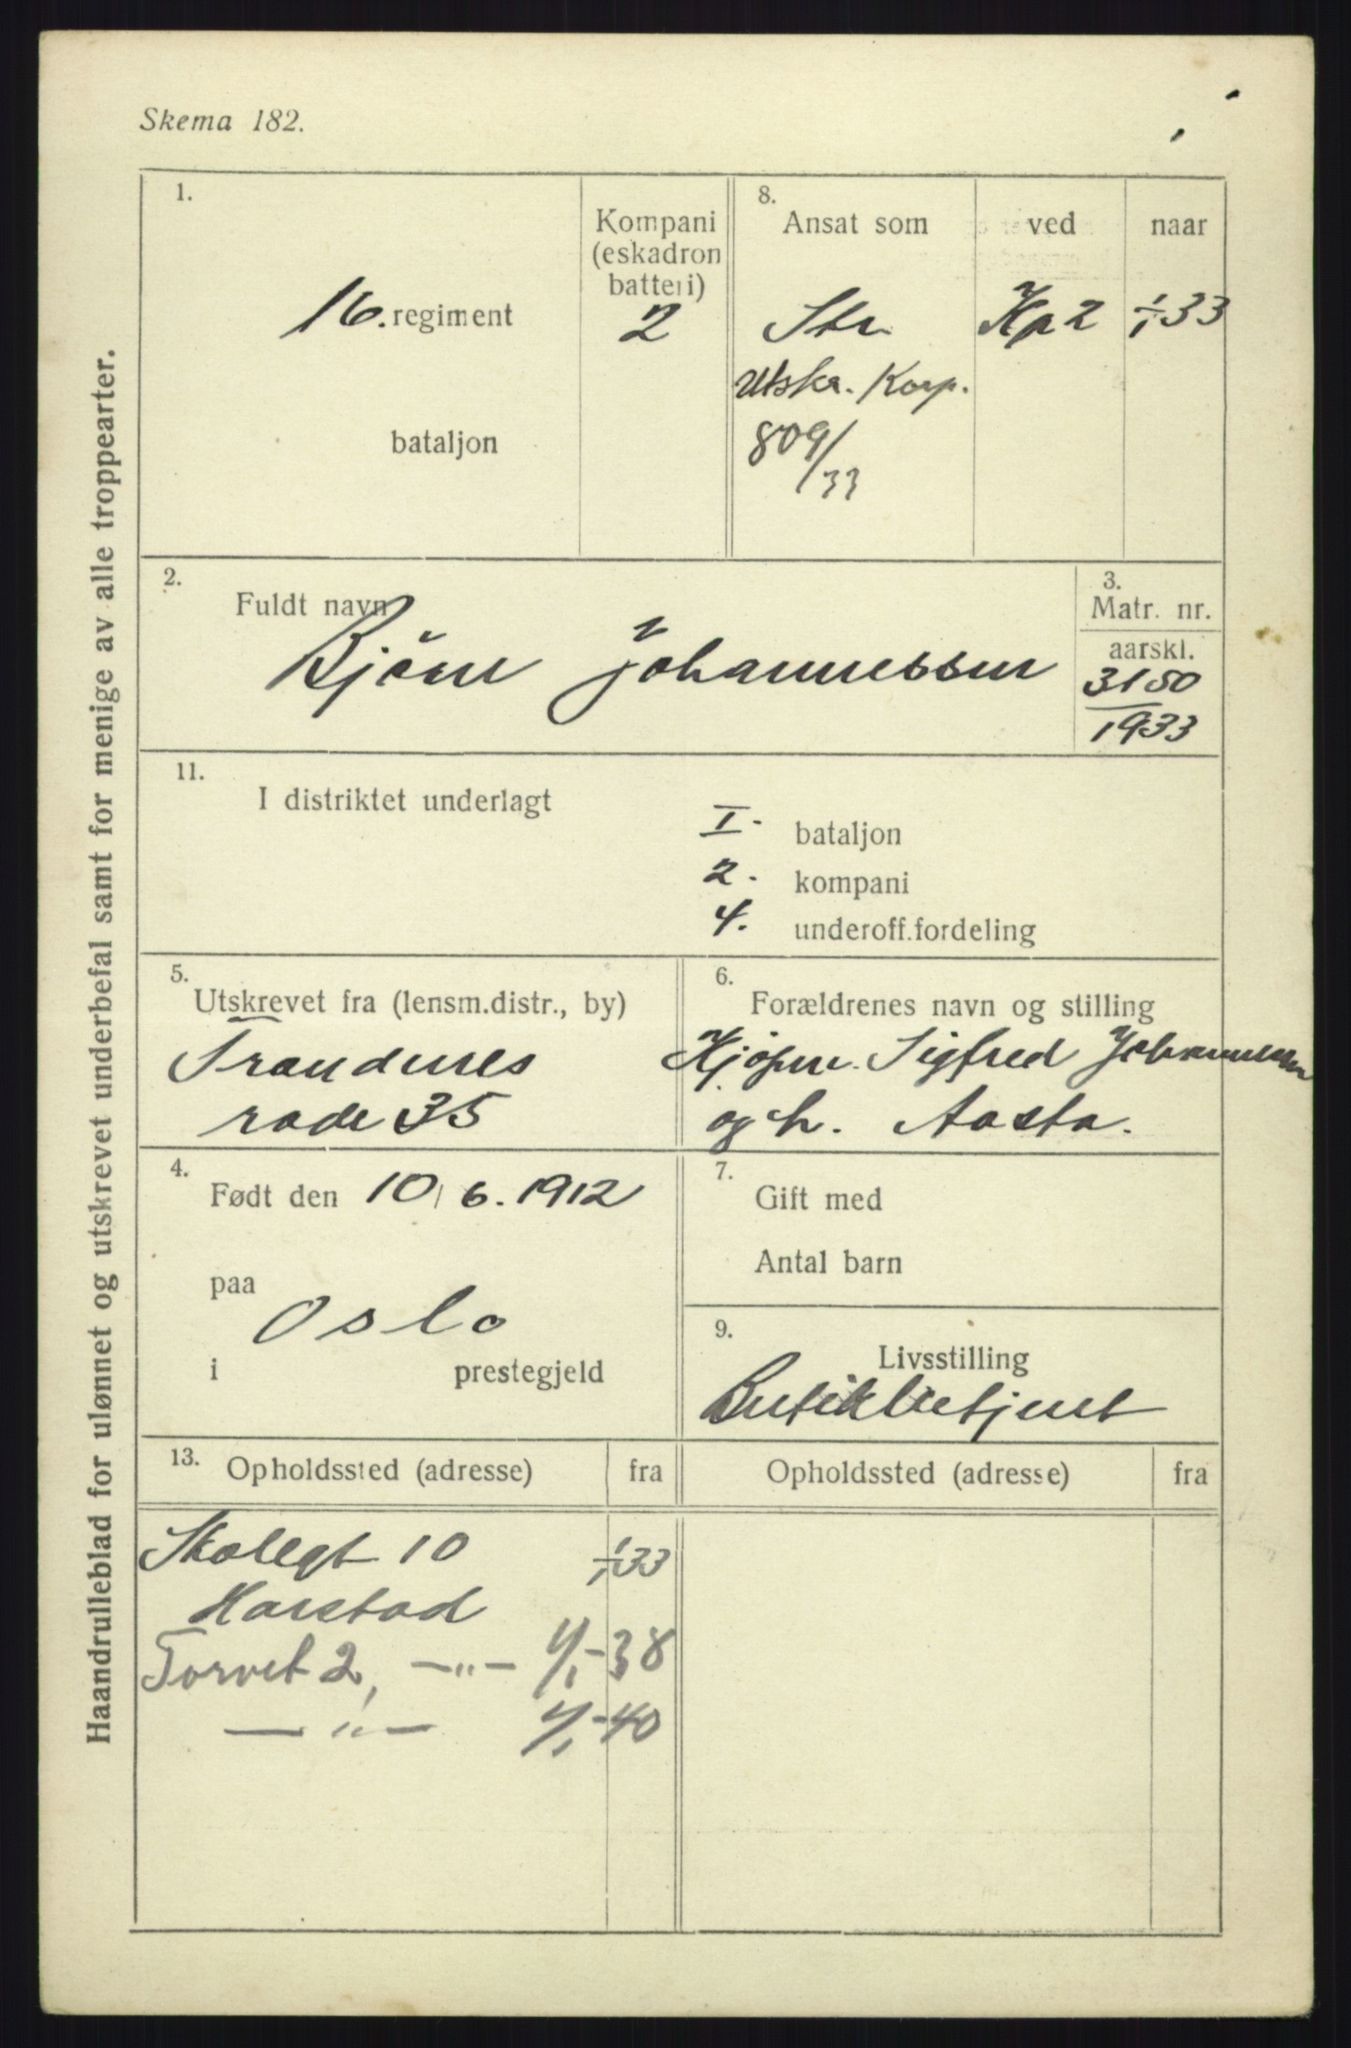 Skema 182.
Haandrulleblad for ulønnet og utskrevet underbefal samt for menige av alle troppearter.
1.
16. regiment
bataljon
Kompani
(eskadron
batteri)
2
8.
Ansat som
ved
naar
Str. Kp 2 1/1 33
Utskr. Korp.
809/33
2.
Fuldt navn
Björn Johannessen
3.
Matr. nr.
aarskl.
3150
1933
11.
I distriktet underlagt
I. bataljon
2. kompani
4. underoff.fordeling
5.
Utskrevet fra (lensm.distr., by)
Trondenes
rode 35
6.
Forældrenes navn og stilling
Kjøpm. Sigfred Johannessen
og h. Aasta.
4.
Født den 10/6. 1912
paa
Oslo
i prestegjeld
7.
Gift med
Antal barn
9.
Livsstilling
Butikkbetjent
13.
Opholdssted (adresse) fra
Opholdssted (adresse) fra
Skolegt 10 1/1 33
Harstad
Torvet 2, —"— 1/1-38
—"— 1/1-40